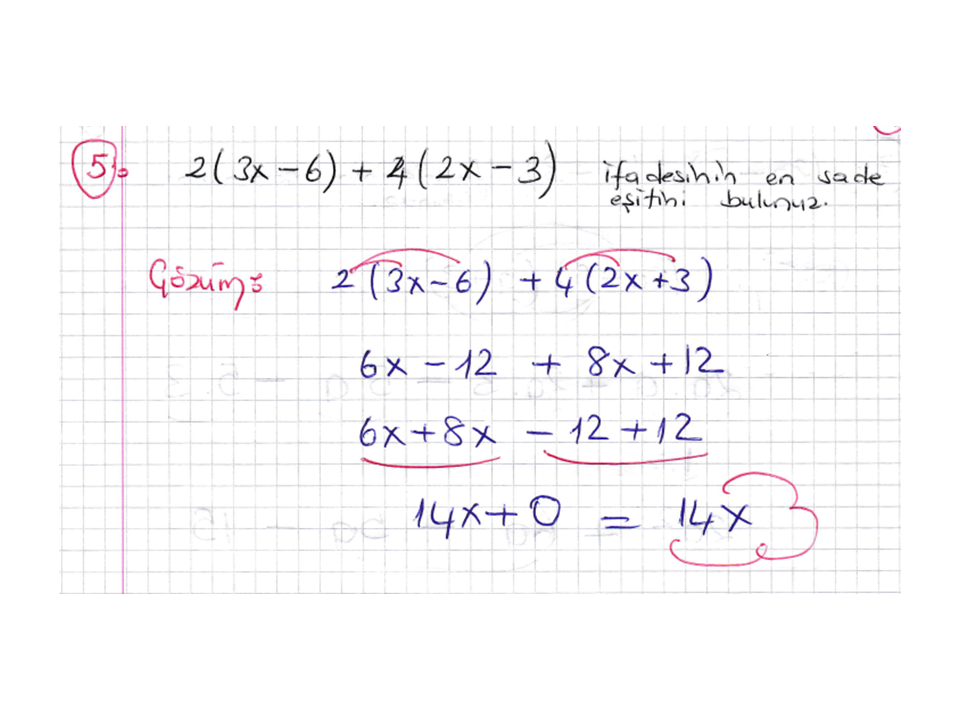 5: 2(3x-6) + 4(2x-3) ifadesinin en sade
eşitini bulunuz.
Çözüm: 2(3x-6) + 4(2x+3)
6x-12 + 8x+12
6x+8x -12+12
14x+0 = 14x